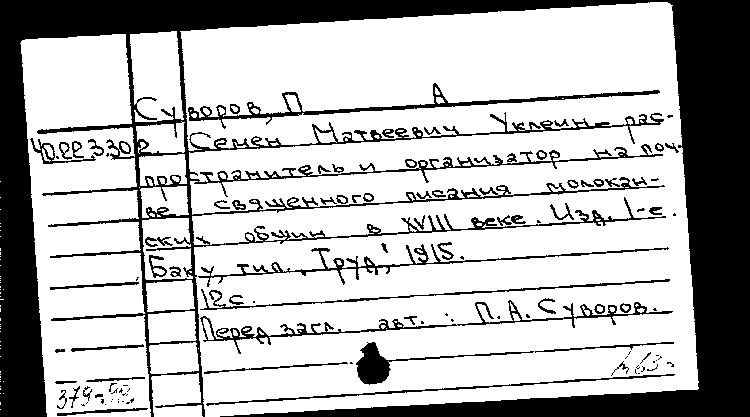 Суворов, П А
Семен Матвеевич Уклеин – рас-
пространитель и организатор на поч-
ве священного писания молокан-
ских общин в XVIII веке. Изд. 1-е.
Баку, тип. „Труд", 1915.
12 с.
Перед загл. авт.: П. А. Суворов.